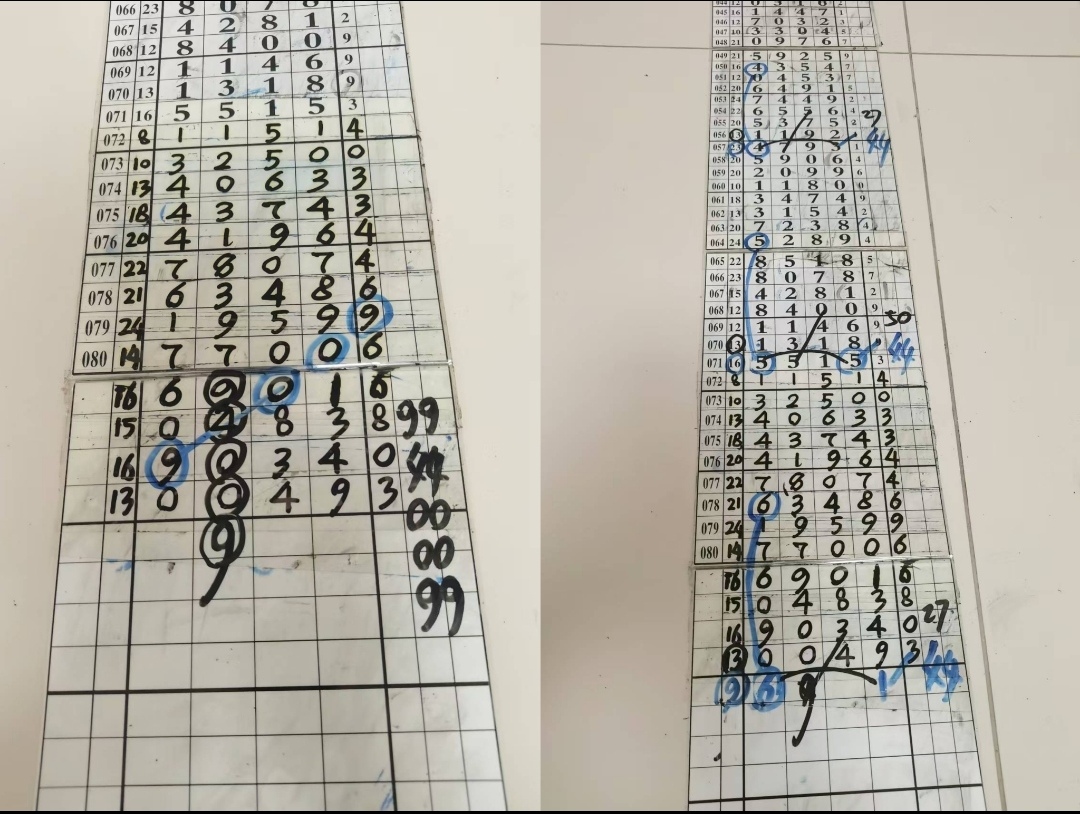 066 23 8 0 7 8
067 15 4 2 8 1 2
068 12 8 4 0 0 9
069 12 1 1 4 6 9
070 13 1 3 1 8 9
071 16 5 5 1 5 3
072 8 1 1 5 1 4
073 10 3 2 5 0 0
074 13 4 0 6 3 3
075 18 4 3 7 4 3
076 20 4 1 9 6 4
077 22 7 8 0 7 4
078 21 6 3 4 8 6
079 24 1 9 5 9 9
080 14 7 7 0 0 6
16 6 9 0 1 6
15 0 4 8 3 8 99
16 9 0 3 4 0 44
13 0 0 4 9 3 00
9 00
99
045 16 1 4 4 7 1
046 12 7 0 3 2 3
047 10 3 3 0 4 5
048 21 0 9 7 6 7
049 21 5 9 2 5 9
050 16 4 3 5 4 7
051 12 0 4 5 3 7
052 20 6 4 9 1 5
053 24 7 4 4 9 2
054 22 6 5 5 6 4 27
055 20 5 3 7 5 2
056 13 1 1 9 2 44
057 23 4 7 9 3 1
058 20 5 9 0 6 4
059 20 2 0 9 9 6
060 10 1 1 8 0 0
061 18 3 4 7 4 9
062 13 3 1 5 4 2
063 20 7 2 3 8 4
064 24 5 2 8 9 4
065 22 8 5 1 8 5
066 23 8 0 7 8 7
067 15 4 2 8 1 2
068 12 8 4 0 0 9
069 12 1 1 4 6 9 50
070 13 1 3 1 8 44
071 16 5 5 1 5 3
072 8 1 1 5 1 4
073 10 3 2 5 0 0
074 13 4 0 6 3 3
075 18 4 3 7 4 3
076 20 4 1 9 6 4
077 22 7 8 0 7 4
078 21 6 3 4 8 6
079 24 1 9 5 9 9
080 14 7 7 0 0 6
16 6 9 0 1 6
15 0 4 8 3 8 27
16 9 0 3 4 0
13 0 0 4 9 3 44
2 6 9 1